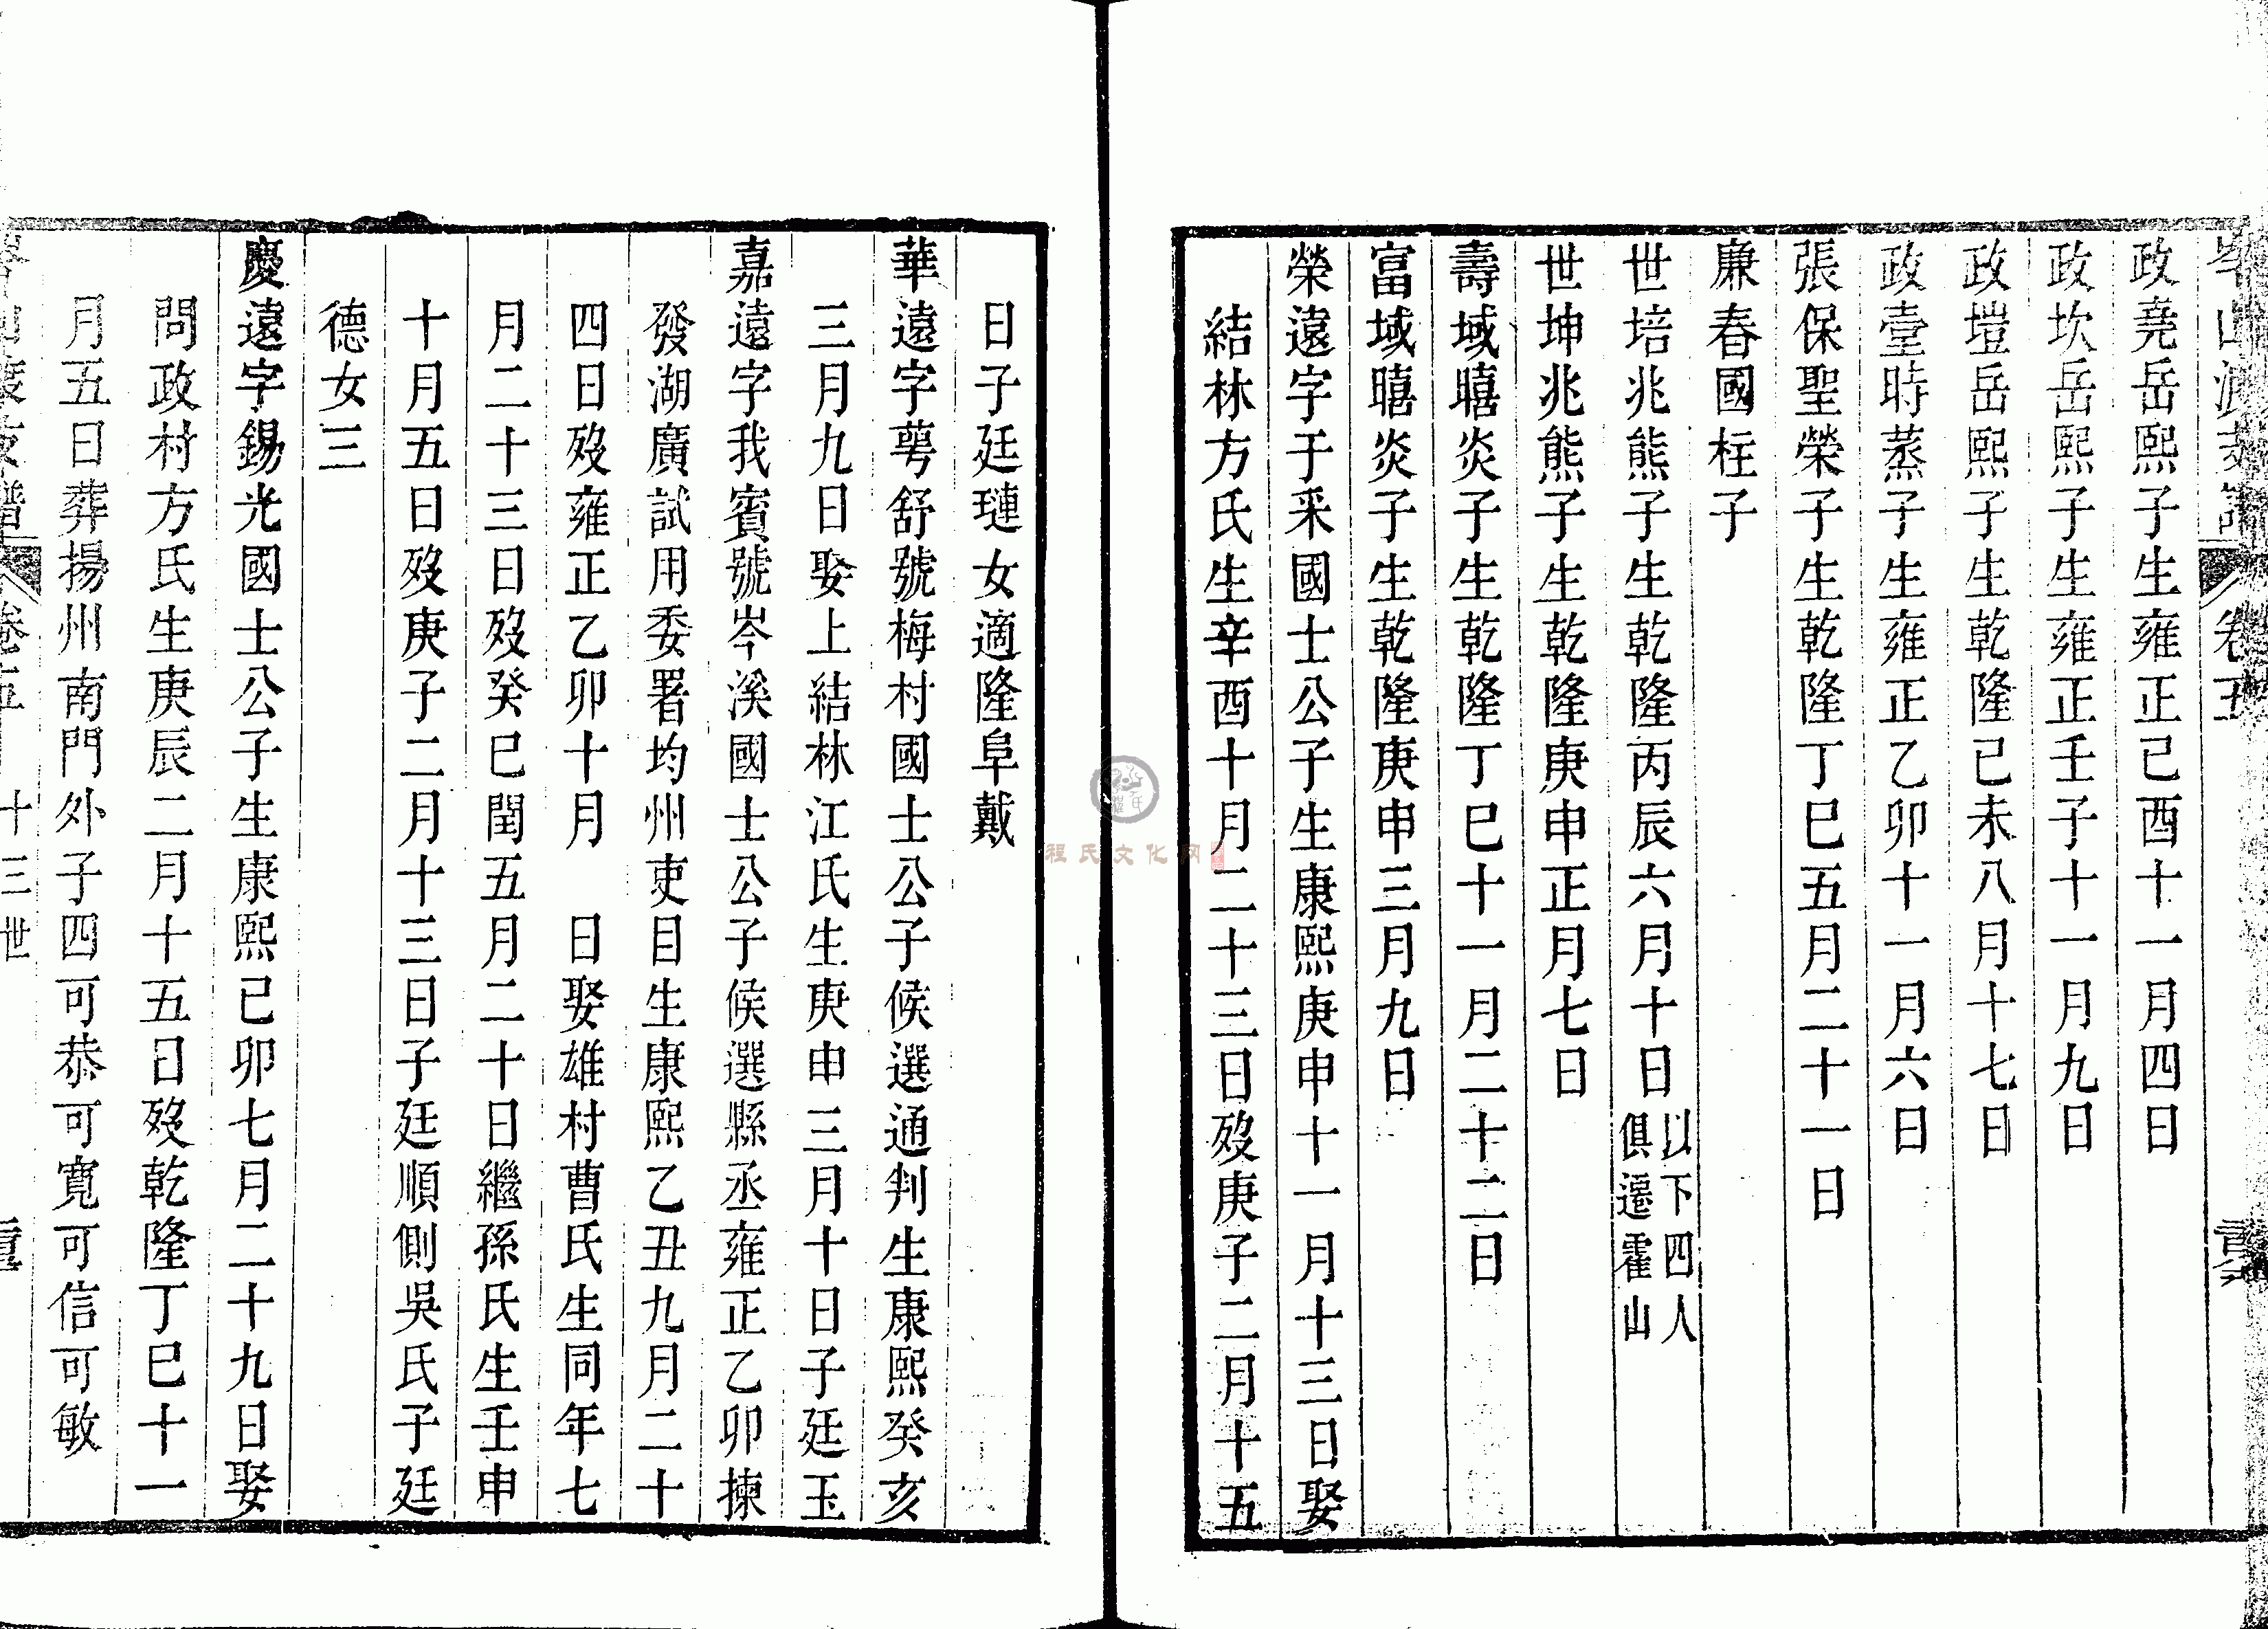 岑山渡支譜 卷五
政堯岳熙子生雍正己酉十一月四日
政坎岳熙子生雍正壬子十一月九日
政塏岳熙子生乾隆已未八月十七日
政臺時蒸子生雍正乙卯十一月六日
張保聖榮子生乾隆丁巳五月二十一日
廉春國柱子
世培兆熊子生乾隆丙辰六月十日以下四人俱遷霍山
世坤兆熊子生乾隆庚申正月七日
壽域暿炎子生乾隆丁巳十一月二十二日
富域暿炎子生乾隆庚申三月九日
榮遠字于釆國士公子生康熙庚申十一月十三日娶
結林方氏生辛酉十月二十三日歿庚子二月十五
日子廷璉女適隆阜戴
華遠字萼舒號梅村國士公子候選通判生康熙癸亥
三月九日娶上結林江氏生庚申三月十日子廷玉
嘉遠字我賓號岑溪國士公子候選縣丞雍正乙卯揀
發湖廣試用委署均州吏目生康熙乙丑九月二十
四日歿雍正乙卯十月　日娶雄村曹氏生同年七
月二十三日歿癸巳閏五月二十日繼孫氏生壬申
十月五日歿庚子二月十三日子廷順側吳氏子廷
德女三
慶遠字錫光國士公子生康熙已卯七月二十九日娶
問政村方氏生庚辰二月十五日歿乾隆丁巳十一
月五日葬揚州南門外子四可恭可寬可信可敏
岑山渡支譜 卷五 十三世
程氏文化网